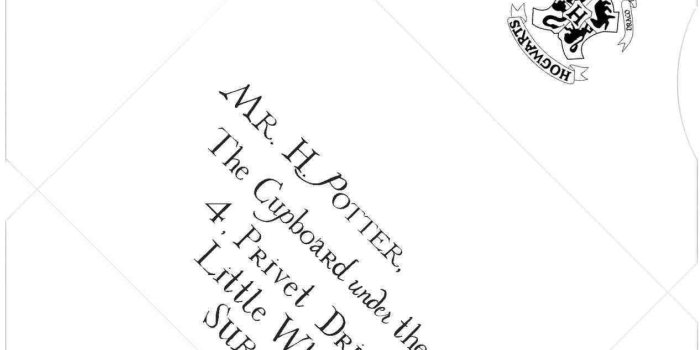 HOGWARTS
DRACO
Mr. H. Potter,
The Cupboard under the
4, Privet Dri
Little Wh
Sur